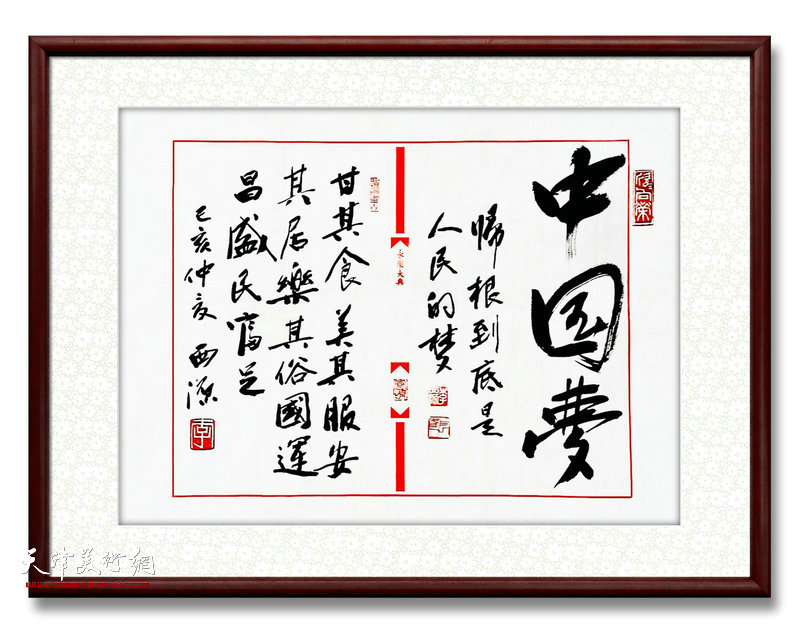 中国夢
歸根到底是
人民的梦
永樂大典
甘其食美其服安
其居樂其俗國運
昌盛民富足
己亥仲亥西源
李
天津美術網